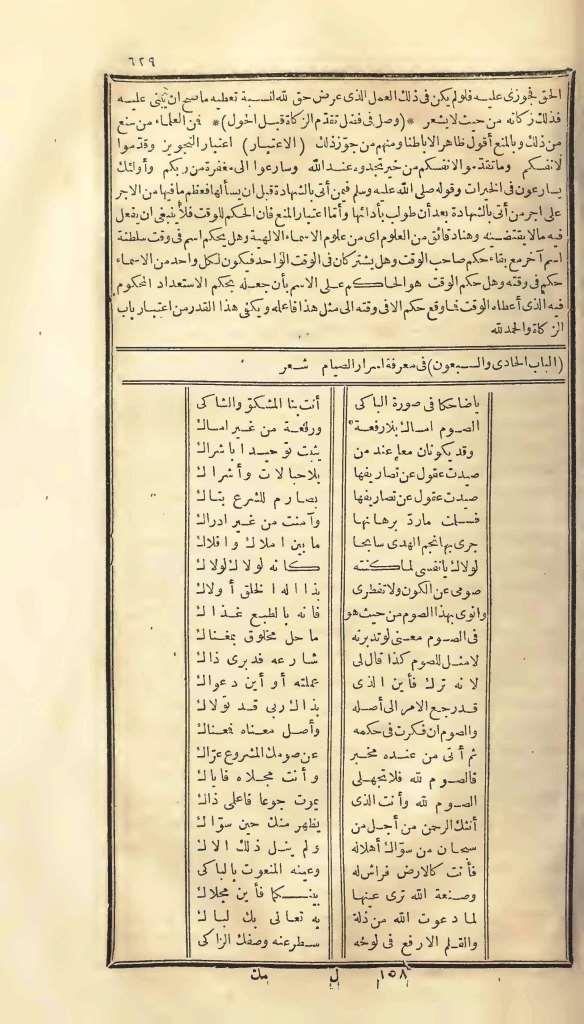 ٦٢٩
الحق فجوزى عليه فلولم يكن فى ذلك العمل الذى عرض حق لله لنسبة تعطيه ماصح ان يثنى عليه
فذلك زكاته من حيث لايشعر *(وصل فى فضل تقدم الزكاة قبل الحول)* فمن العلماء من منع
من ذلك وبالمنع أقول ظاهرالاباطنا ومنهم من جوّز ذلك (الاعتبار) اعتبار التجويز وقدموا
لانفسكم وماتقدموا لانفسكم من خير تجدوه عندالله وسارعوا الى مغفرة من ربكم وأولئك
يسارعون فى الخيرات وقوله صلى الله عليه وسلم فيمن أتى بالشهادة قبل ان يسألها فعظم مافيها من الاجر
على اجر من أتى بالشهادة بعد أن طولب بأدائها وأمّا اعتبار المنع فان الحكم للوقت فلا ينبغى ان يفعل
فيه مالا يقتضيه وهنا دقائق من العلوم اى من علوم الاسماء الالهية وهل يحكم اسم فى وقت سلطنة
اسم آخر مع بقاء حكم صاحب الوقت وهل يشتركان فى الوقت الواحد فيكون لكل واحد من الاسماء
حكم فى وقته وهل حكم الوقت هو الحاكم على الاسم بأن جعله يحكم الاستعداد المحكوم
فيه الذى أعطاه الوقت فما وقع حكم الا فى وقته الى مثل هذا فاعله ويكفى هذا القدر من اعتبار باب
الزكاة والحمدلله
(الباب الحادى والسبعون) فى معرفة اسرار الصيام شعر
ياضاحكا فى صورة الباكى أنت بنا المشكوّ والشاكى
الصوم امساك بلا رفعة ورفعة من غير امساك
وقد يكونان معا عند من يثبت توحيدا باشراك
صيدت عقول عن تصاريفها بلاحبالات وأشراك
صيدت عقول عن تصاريفها بصارم للشرع بتاك
فسلت مارد برهانها وآمنت من غير ادراك
جرى بها نجم الهدى سابحا ما بين املاك وافلاك
لولاك يانفسى لما كنته كانه لولاك لولاك
صومى عن الكون ولا تفطرى بذا اله الخلق أولاك
وانوى بهذا الصوم من حيث هو فانه بالطبع غذاك
فى الصوم معنى لوتدبرته ماحل مخلوق بمغناك
لامثل للصوم كذا قال لى شارعه فدبرى ذاك
لانه ترك فأين الذى عملته أو أين دعواك
قد رجع الامر الى أصله بذاك ربى قد تولاك
والصوم ان فكرت فى حكمه وأصل معناه فمعناك
ثم أتى من عنده مخبر عن صومك المشروع عرّاك
فالصوم لله فلاتجهلى وأنت مجلاه فاياك
الصوم لله وأنت الذى يموت جوعا فاعلمى ذاك
أنثك الرحمن من أجل من يظهر منك حين سوّاك
سبحان من سوّاك أهلاله ولم ينل ذلك الاك
فأنت كالارض فراش له وعينه المنعوت بالباكى
وصنعة الله ترى عينها بينكما فأين مجلاك
لما دعوت الله من ذلة به تعالى بك لباك
والقلم الارفع فى لوحه سطرعنه وصفك الزاكى
١٥٨ ل مك